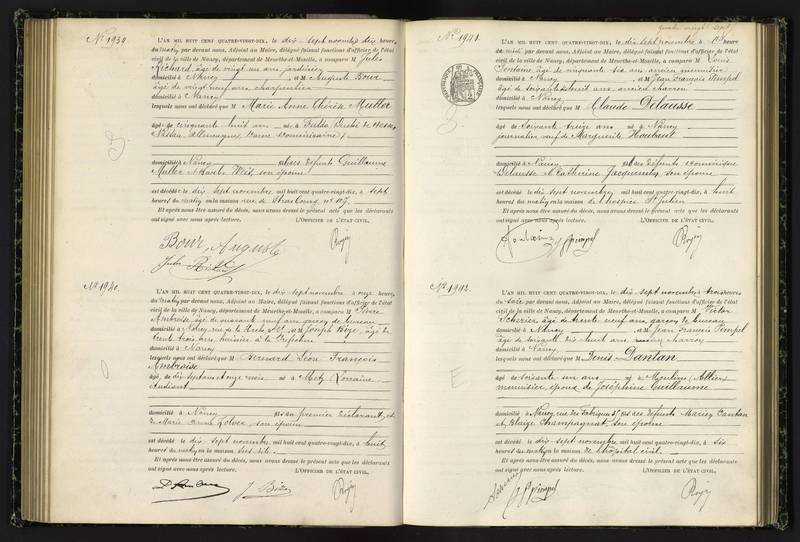 No. 1939.
L'AN MIL HUIT CENT QUATRE-VINGT-DIX, le dix sept novembre à dix heures
du matin par devant nous, Adjoint au Maire, délégué faisant fonctions d'officier de l'état
civil de la ville de Nancy, département de Meurthe-et-Moselle, a comparu M Jules
Richard, âgé de vingt un ans, jardinier
domicilié à Nancy et M Auguste Bour,
âgé de vingt neuf ans, charpentier
domicilié à Nancy
lesquels nous ont déclaré que M Marie Anne Thérèse Muller
âgé de cinquante huit ans né à Fulda, Duché de Hesse
Nassau, Allemagne,
domicilié à Nancy des défunts Guillaume
Muller et son épouse
est décédé le dix sept novembre, mil huit cent quatre-vingt-dix, à sept
heures du matin en la maison rue de Strasbourg, no 107.
Et après nous être assuré du décès, nous avons dressé le présent acte que les déclarants
ont signé avec nous après lecture. L'OFFICIER DE L'ÉTAT CIVIL,
Bour, Auguste
Jules Richard
No 1940.
L'AN MIL HUIT CENT QUATRE-VINGT-DIX, le dix sept novembre à onze heures
du matin, par devant nous, Adjoint au Maire, délégué faisant fonctions d'officier de l'état
civil de la ville de Nancy, département de Meurthe-et-Moselle, a comparu M Pierre
Ambroise, âgé de quarante neuf ans, garçon de bureau
domicilié à Nancy, rue de la et M Joseph Bize, âgé de
trente trois ans, huissier à la Préfecture
domicilié à Nancy
lesquels nous ont déclaré que M Bernard Léon François
Ambroise
âgé de dix sept ans onze mois né à Metz, Lorraine,
étudiant
domicilié à Nancy fils du premier déclarant, et
de Marie Anne son épouse
est décédé le dix sept novembre, mil huit cent quatre-vingt-dix, à huit
heures du matin en la maison sus dite.
Et après nous être assuré du décès, nous avons dressé le présent acte que les déclarants
ont signé avec nous après lecture. L'OFFICIER DE L'ÉTAT CIVIL,
J. Bize
quatre vingt sept
No. 1941.
L'AN MIL HUIT CENT QUATRE-VINGT-DIX, le dix sept novembre à heure
par devant nous, Adjoint au Maire, délégué faisant fonctions d'officier de l'état
civil de la ville de Nancy, département de Meurthe-et-Moselle, a comparu M Louis
Fontaine, âgé de cinquante six ans, ancien menuisier
domicilié à Nancy et M Jean François Pimpel
âgé de soixante huit ans, ancien charron
domicilié à Nancy
lesquels nous ont déclaré que M Claude Délausse
âgé de soixante treize ans né à Nancy
journalier, veuf de Marguerite Houbault
domicilié à Nancy fils des défunts Dominique
Délausse et Catherine Jacquemin, son épouse
est décédé le dix sept novembre, mil huit cent quatre-vingt-dix, à huit
heures du matin en la maison de l'hospice St Julien
Et après nous être assuré du décès, nous avons dressé le présent acte que les déclarants
ont signé avec nous après lecture. L'OFFICIER DE L'ÉTAT CIVIL,
Fontaine J F pimpel
No. 1942.
L'AN MIL HUIT CENT QUATRE-VINGT-DIX, le dix sept novembre, à trois heures
du soir par devant nous, Adjoint au Maire, délégué faisant fonctions d'officier de l'état
civil de la ville de Nancy, département de Meurthe-et-Moselle, a comparu M Victor
âgé de trente neuf ans, garçon de bureau
domicilié à Nancy et M Jean François Pimpel
âgé de soixante huit ans, ancien charron
domicilié à Nancy,
lesquels nous ont déclaré que M Denis Dantan
âgé de soixante un ans né à Moulins, Allier,
menuisier, époux de Joséphine Guillaume
domicilié à Nancy, rue des Fabriques fils des défunts Dantan
et Champagnat, son épouse
est décédé le dix sept novembre, mil huit cent quatre-vingt-dix, à six
heures du matin en la maison de l'hôpital civil.
Et après nous être assuré du décès, nous avons dressé le présent acte que les déclarants
ont signé avec nous après lecture. L'OFFICIER DE L'ÉTAT CIVIL,
J F pimpel